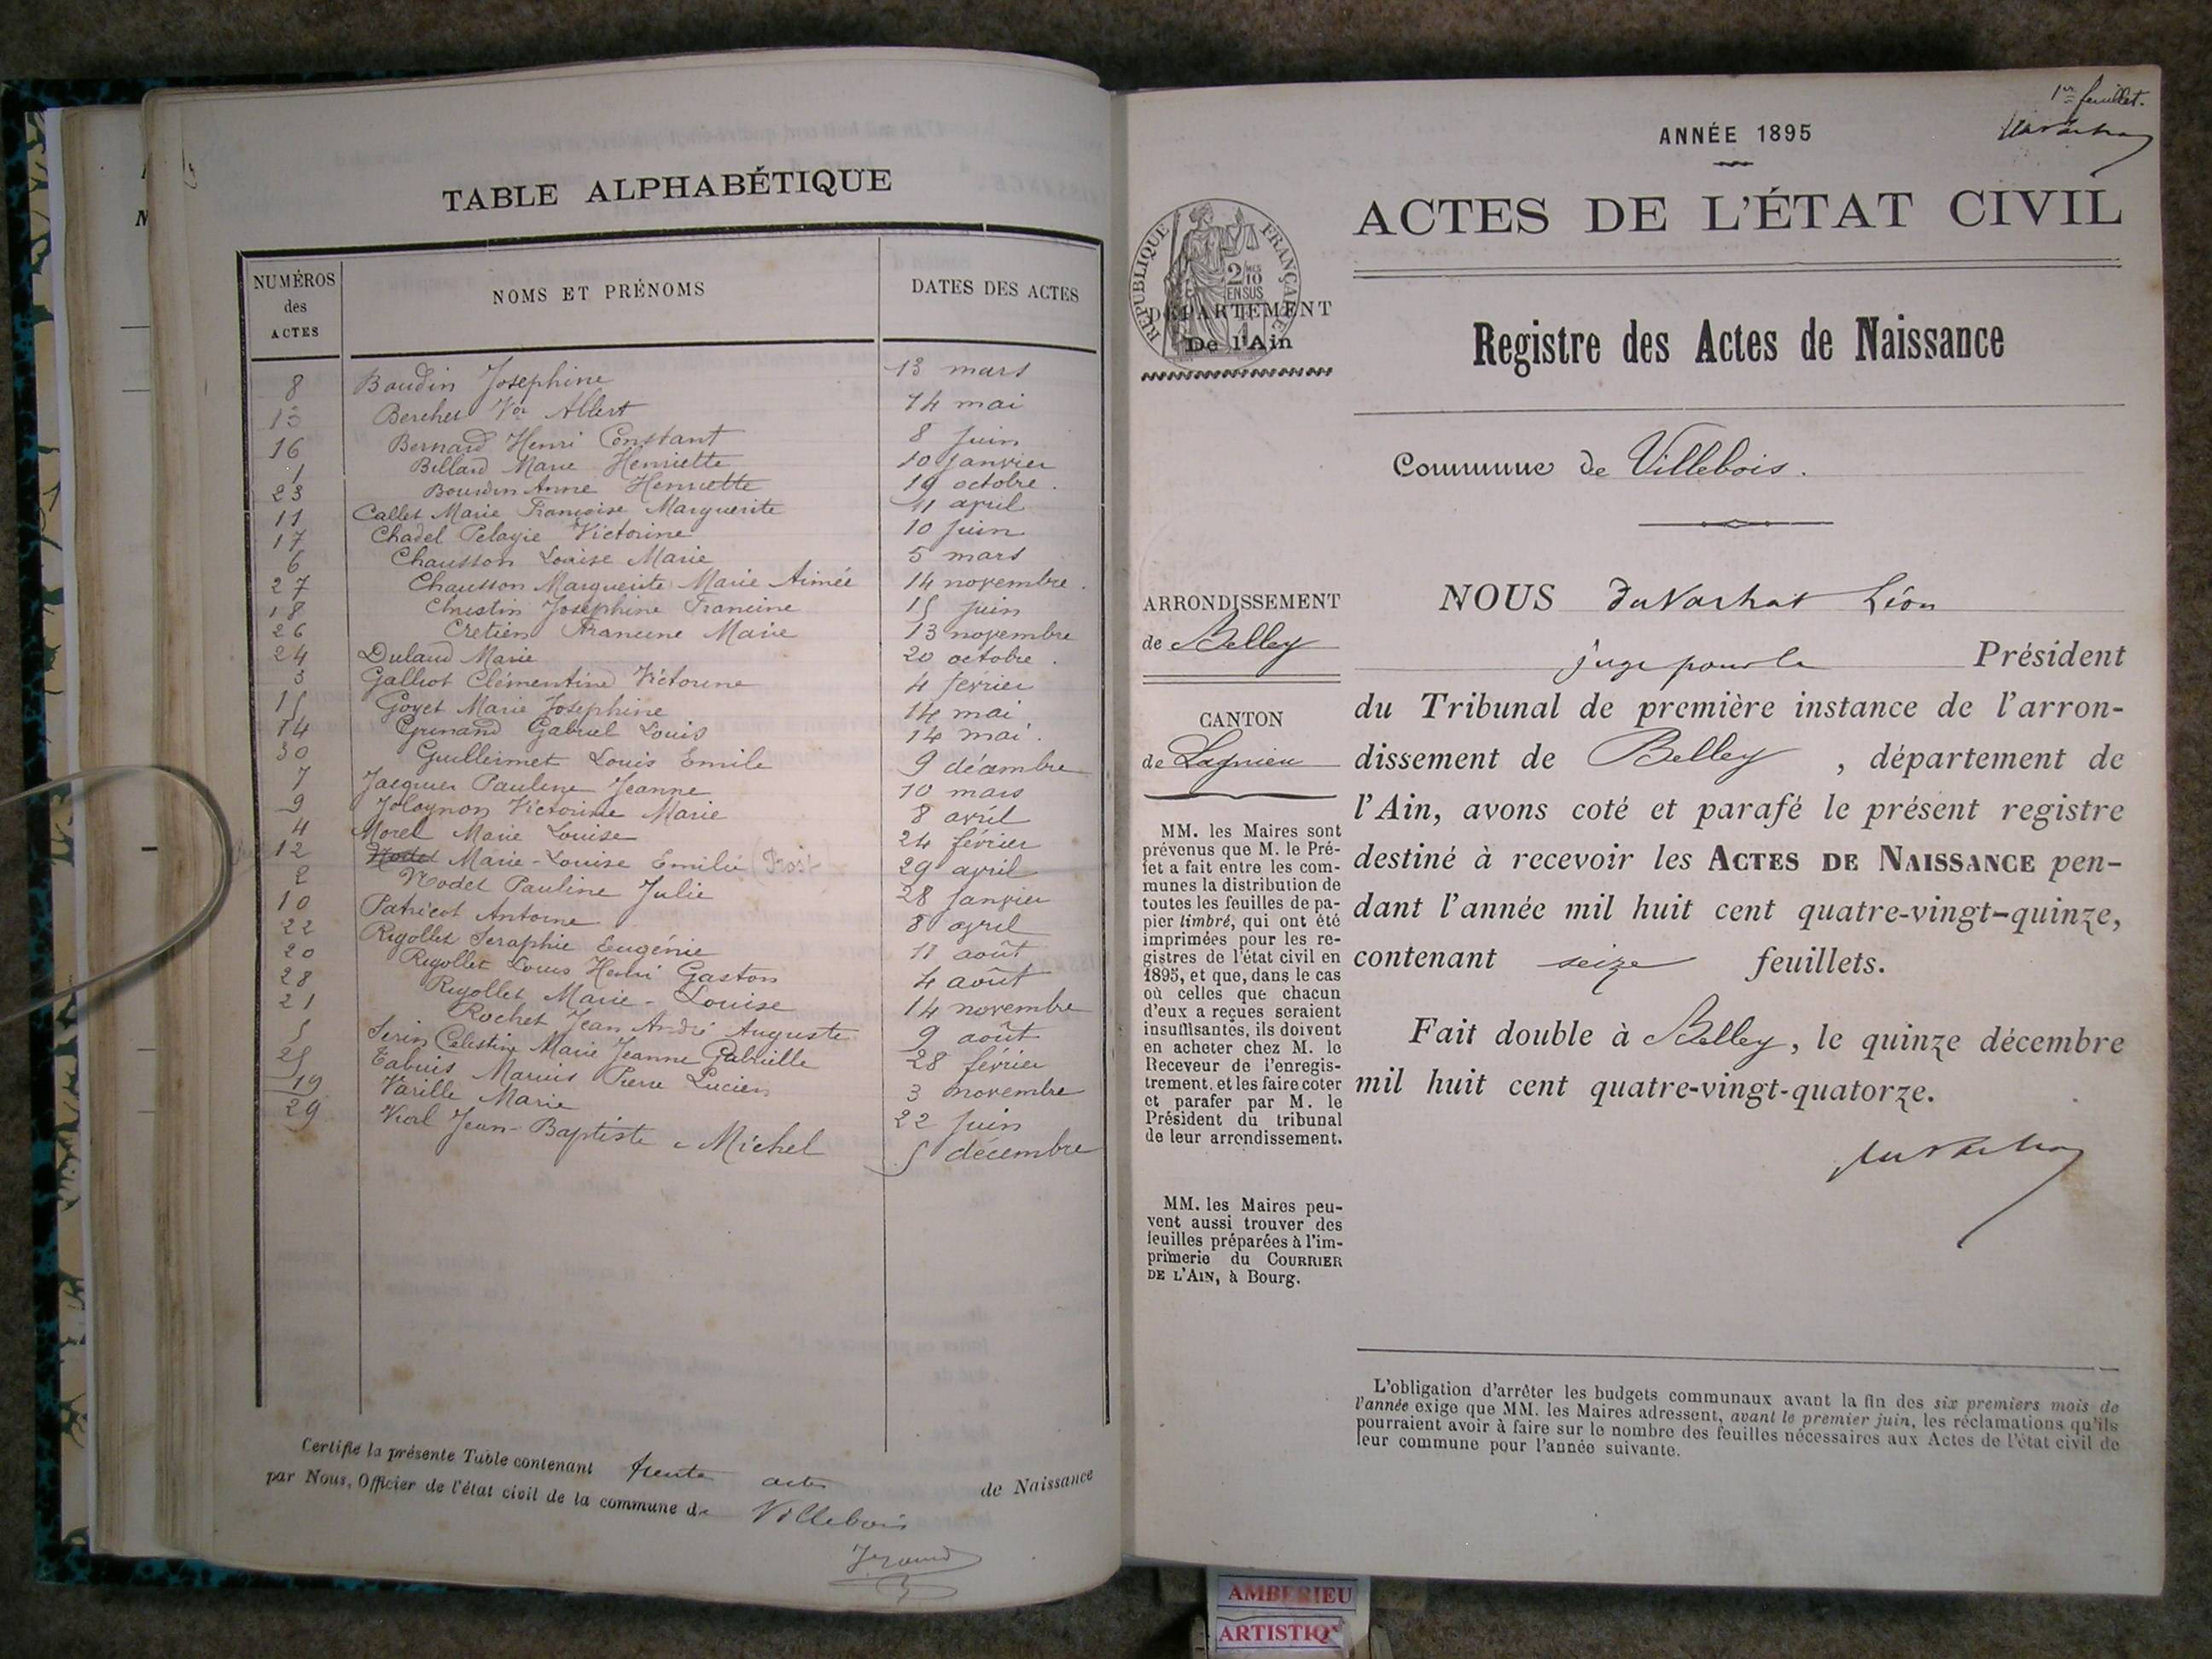 TABLE ALPHABÉTIQUE
NUMÉROS des ACTES
NOMS ET PRÉNOMS
DATES DES ACTES
8 Baudin Josephine 13 mars
13 Berchet Vor Albert 14 mai
16 Bernard Henri Constant 8 juin
1 Billard Marie Henriette 10 janvier
23 Bourdin Anne Henriette 19 octobre.
11 Callet Marie Françoise Marguerite 11 avril
17 Chadel Pelagie Victorine 10 juin
6 Chausson Louise Marie 5 mars
27 Chausson Marguerite Marie Aimée 14 novembre.
18 Christin Joséphine Francine 15 juin
26 Cretien Francine Marie 13 novembre
24 Dulaud Marie 20 octobre.
3 Galliot Clémentine Victorine 4 février
15 Goyet Marie Joséphine 14 mai
14 Grinand Gabriel Louis 14 mai.
30 Guillermet Louis Emile 9 décembre
7 Jacquier Pauline Jeanne 10 mars
9 Joloynon Victorine Marie 8 avril
4 Morel Marie Louise 24 février
12 Marie-Louise Emilie 29 avril
2 Nodet Pauline Julie 28 janvier
10 Patricot Antoine 8 avril
22 Rigollet Seraphie Eugénie 11 août
20 Rigollet Louis Henri Gaston 4 août
28 Rigollet Marie-Louise 14 novembre
21 Rochet Jean André Auguste 9 août
5 Serin Célestine Marie Jeanne Gabrielle 28 février
25 Tabuis Marius Pierre Lucien 3 novembre
19 Varille Marie 22 juin
29 Vial Jean-Baptiste - Michel 5 décembre
Certifié la présente Table contenant trente actes de Naissance
par Nous, Officier de l'état civil de la commune de Villebois
1er feuillet.
ANNÉE 1895
ACTES DE L'ÉTAT CIVIL
RÉPUBLIQUE FRANÇAISE
2/10MES
EN SUS
DÉPARTEMENT
De l'Ain
Registre des Actes de Naissance
Commune de Villebois.
ARRONDISSEMENT
de Belley
CANTON
de Lagnieu
MM. les Maires sont
prévenus que M. le Pré-
fet a fait entre les com-
munes la distribution de
toutes les feuilles de pa-
pier timbré, qui ont été
imprimées pour les re-
gistres de l'état civil en
1895, et que, dans le cas
où celles que chacun
d'eux a reçues seraient
insuffisantes, ils doivent
en acheter chez M. le
Receveur de l'enregis-
trement, et les faire coter
et parafer par M. le
Président du tribunal
de leur arrondissement.
MM. les Maires peu-
vent aussi trouver des
feuilles préparées à l'im-
primerie du COURRIER
DE L'AIN, à Bourg.
NOUS duVachat Léon
juge pour le Président
du Tribunal de première instance de l'arron-
dissement de Belley, département de
l'Ain, avons coté et parafé le présent registre
destiné à recevoir les ACTES DE NAISSANCE pen-
dant l'année mil huit cent quatre-vingt-quinze,
contenant seize feuillets.
Fait double à Belley, le quinze décembre
mil huit cent quatre-vingt-quatorze.
L'obligation d'arrêter les budgets communaux avant la fin des six premiers mois de
l'année exige que MM. les Maires adressent, avant le premier juin, les réclamations qu'ils
pourraient avoir à faire sur le nombre des feuilles nécessaires aux Actes de l'état civil de
leur commune pour l'année suivante.
AMBERIEU
ARTISTIQ